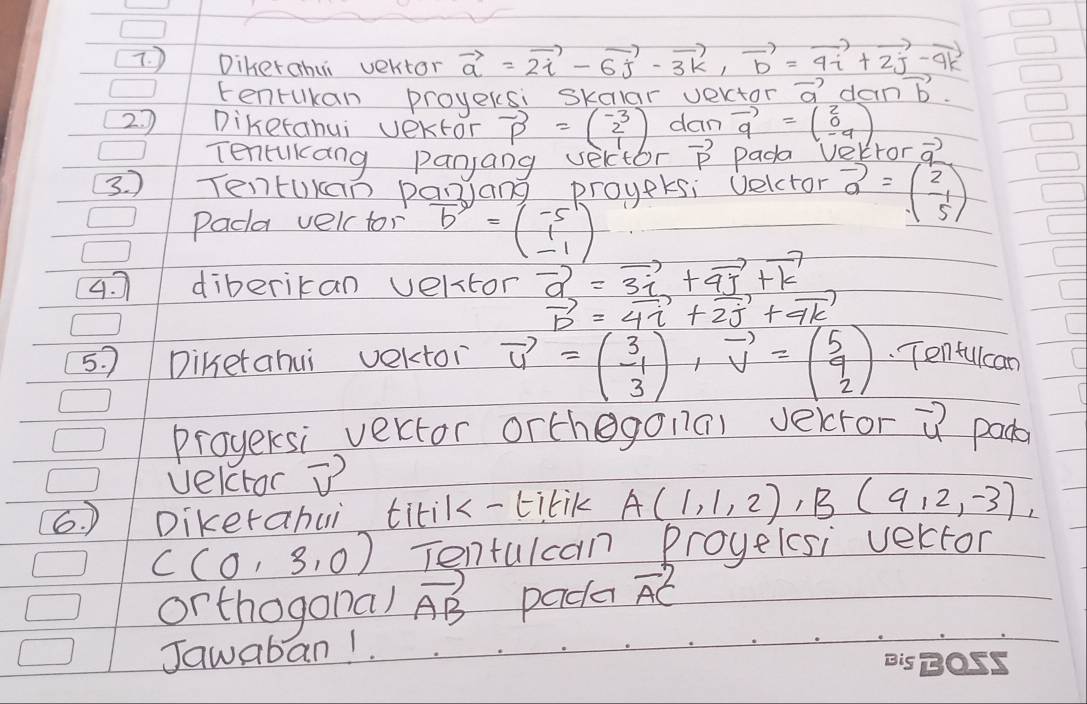 1.) Diketahui vektor a⃗ = 2i⃗ - 6j⃗ - 3k⃗, b⃗ = 4i⃗ + 2j⃗ - 4k⃗
tentukan proyeksi skalar vektor a⃗ dan b⃗.
2.) Diketahui vektor p⃗ = (-3 2 1) dan q⃗ = (2 0 -4)
Tentukang panjang vektor p⃗ pada vektor q⃗
3.) Tentukan panjang proyeksi vektor a⃗ = (2 -1 5)
pada vektor b⃗ = (-5 1 -1)
4.) diberikan vektor a⃗ = 3i⃗ + 4j⃗ + k⃗
b⃗ = 4i⃗ + 2j⃗ + 4k⃗
5.) Diketahui vektor u⃗ = (3 -1 3), v⃗ = (5 4 2). Tentukan
proyeksi vektor orthogonal vektor u⃗ pada
vektor v⃗
6.) Diketahui titik-titik A(1,1,2), B(4,2,-3),
C(0,3,0) Tentukan Proyeksi vektor
orthogonal AB⃗ pada AC⃗
Jawaban!
Big BOSS